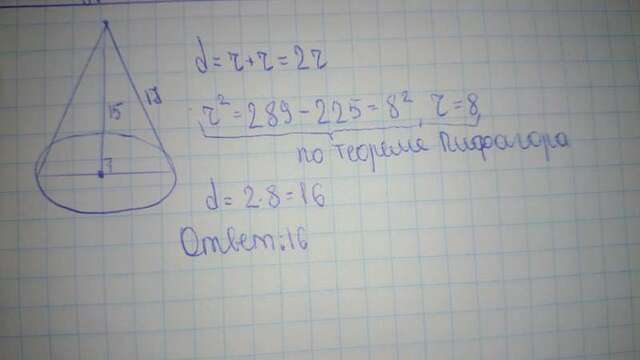 d = r + r = 2r
15
17
r² = 289 - 225 = 8², r = 8
по теореме Пифагора
d = 2·8 = 16
Ответ: 16